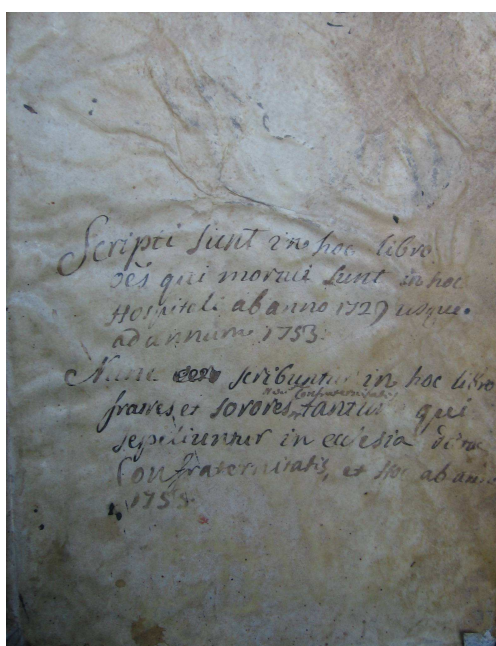 Scripti sunt in hoc libro
oēs qui mortui sunt in hoc
Hospitali ab anno 1729 usque
ad annum 1753.
Nunc scribuntur in hoc libro
Confraternitatis
fratres, et sorores, tantum qui
sepeliuntur in ecclesia
Confraternitatis, et hoc ab anno
1753.